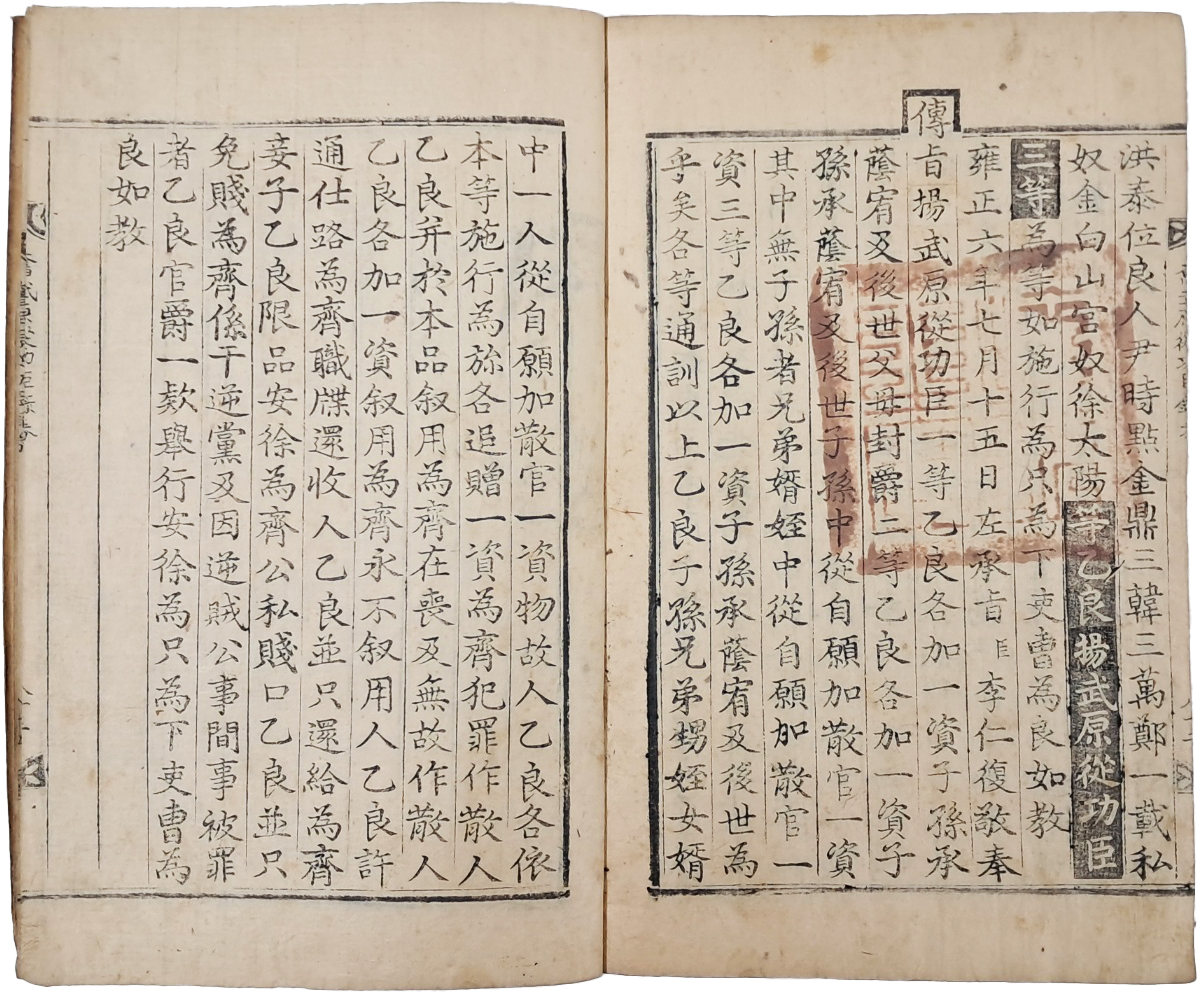 洪泰位良人尹時點金鼎三韓三萬鄭一載私
奴金白山宮奴徐太陽等乙良揚武原從功臣
三等為等如施行為只為下吏曹為良如教
雍正六年七月十五日左承旨臣李仁復敬奉
傳
旨揚武原從功臣一等乙良各加一資子孫承
蔭宥及後世父母封爵二等乙良各加一資子
孫承蔭宥及後世子孫中從自願加散官一資
其中無子孫者兄弟婿姪中從自願加散官一
資三等乙良各加一資子孫承蔭宥及後世為
乎矣各等通訓以上乙良子孫兄弟甥姪女婿
中一人從自願加散官一資物故人乙良各依
本等施行為旀各追贈一資為齊犯罪作散人
乙良并於本品叙用為齊在喪及無故作散人
乙良各加一資叙用為齊永不叙用人乙良許
通仕路為齊職牒還收人乙良並只還給為齊
妾子乙良限品安徐為齊公私賤口乙良並只
免賤為齊係干逆黨及因逆賊公事間事被罪
者乙良官爵一欵舉行安徐為只為下吏曹為
良如教